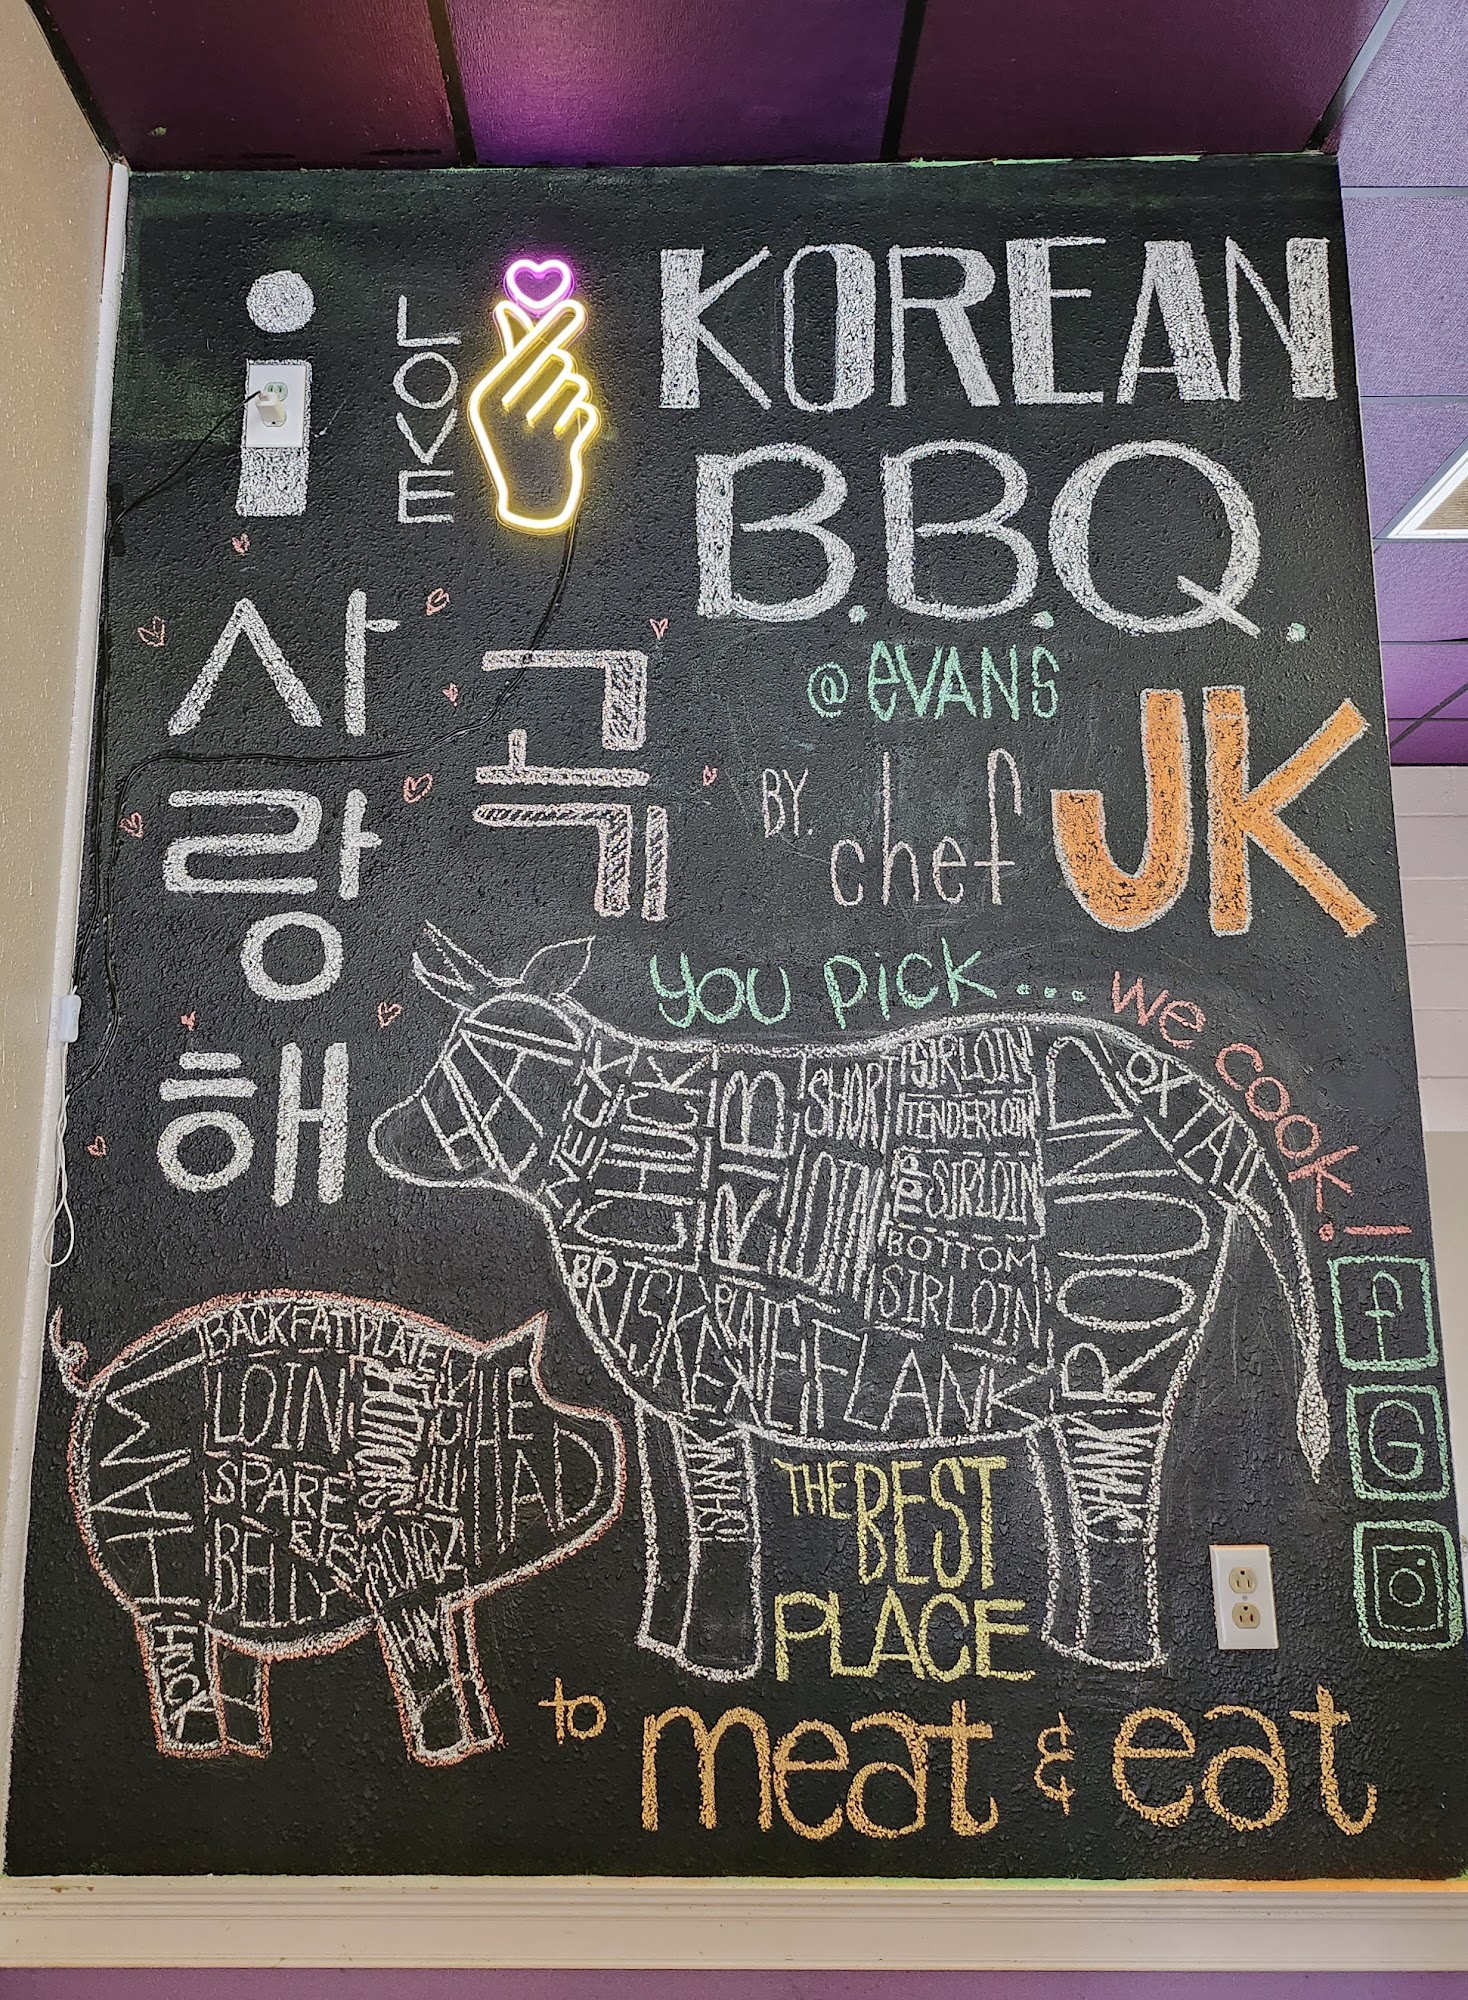 i LOVE
KOREAN
B.B.Q.
@ evans
BY. chef JK
사랑해
고
뀨
you pick... we cook!
HEAD
NECK
CHUCK
RIB
SHORT LOIN
SIRLOIN
TENDERLOIN
TOP SIRLOIN
BOTTOM SIRLOIN
ROUND
OXTAIL
BRISKET
PLATE
FLANK
SHANK
SHANK
BACK FAT
PLATE
LOIN
SPARE RIBS
BELLY
HEAD
HAM
f
G
THE BEST
PLACE
to meat & eat